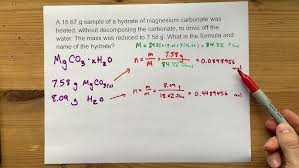 A 15.67 g sample of a hydrate of magnesium carbonate was
heated, without decomposing the carbonate, to drive off the
water. The mass was reduced to 7.58 g. What is the formula and
name of the hydrate?
MgCO3 · xH2O
n = m/M = 7.58 g / 84.32 g/mol = 0.0898956 mol
7.58 g MgCO3(s)
8.09 g H2O
n = m/M = 8.09 g / 18.02 g/mol = 0.4489456 mol